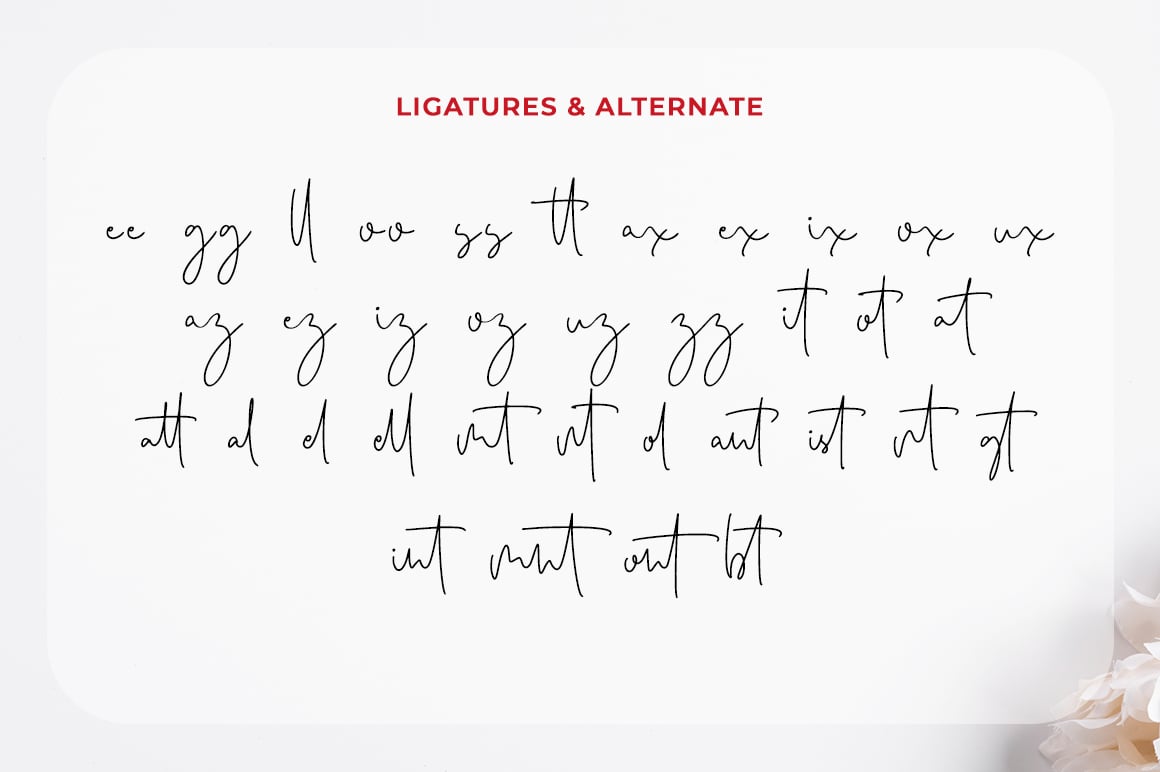 LIGATURES & ALTERNATE
ee gg ll oo ss tt ax ex ix ox ux
az ez iz oz uz zz it ot at
att al el ell nt ol ist rt gt
int ont bt